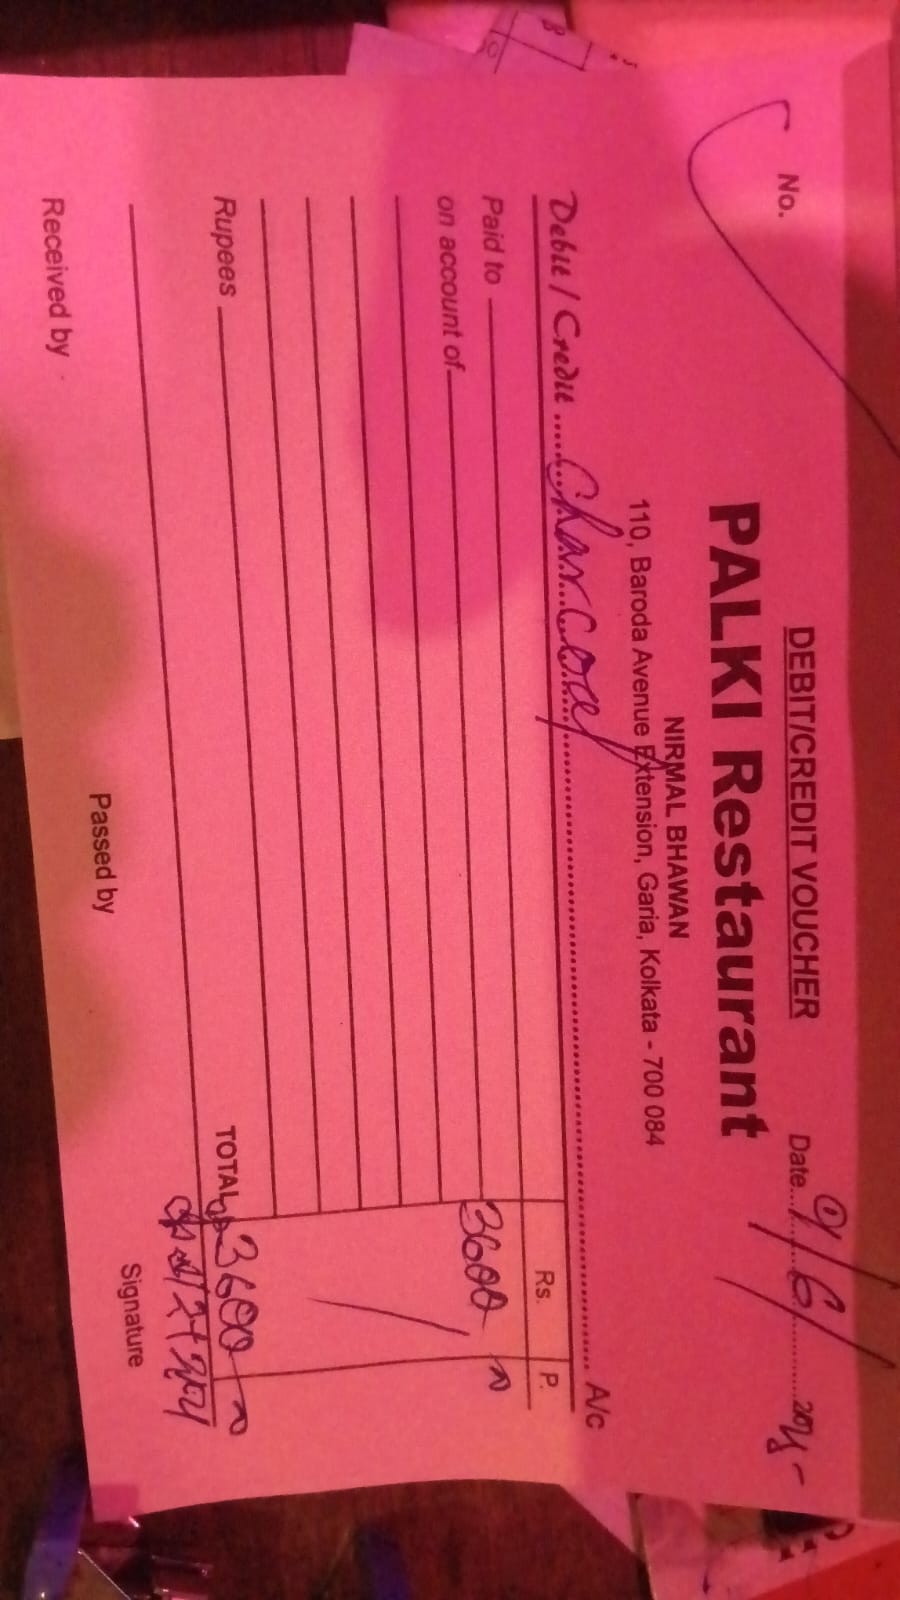 DEBIT/CREDIT VOUCHER
No. Date 9/6/
PALKI Restaurant
NIRMAL BHAWAN
110, Baroda Avenue Extension, Garia, Kolkata - 700 084
Debit / Credit Charcoal A/c
Rs. P.
Paid to 3600
on account of
Rupees TOTAL 3600
Received by Passed by Signature